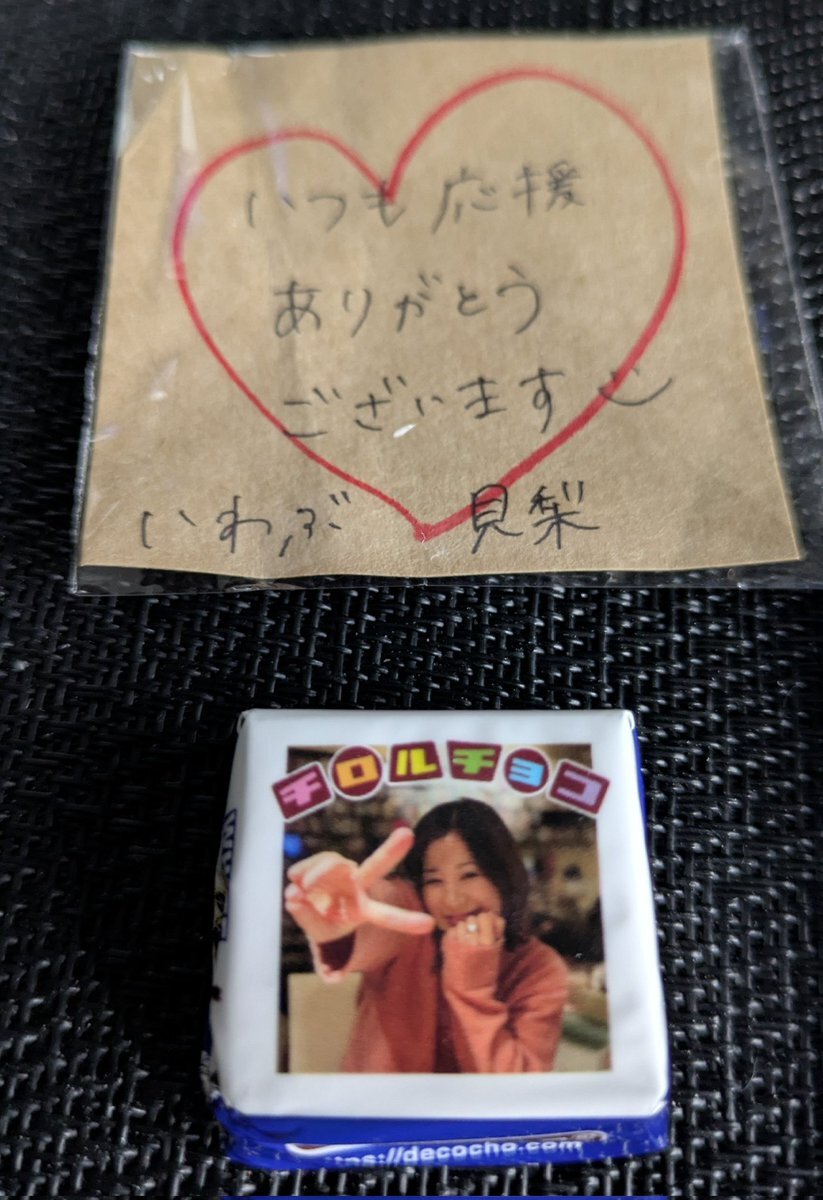 いつも応援
ありがとう
ございます
いわぶ 見梨
チロルチョコ
ttps://decocho.com